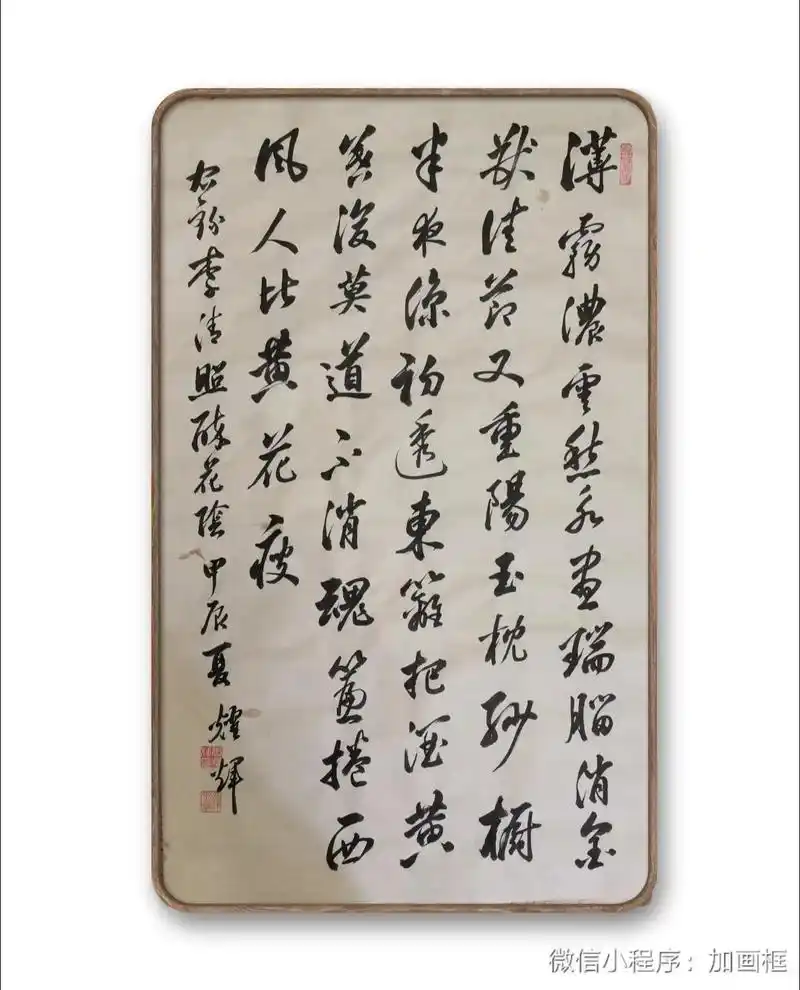 薄霧濃雲愁永晝瑞腦消金
獸佳節又重陽玉枕紗橱
半夜涼初透東籬把酒黃
昏後莫道不消魂簾捲西
風人比黃花瘦
右錄李清照醉花陰甲辰夏燿輝
微信小程序：加画框